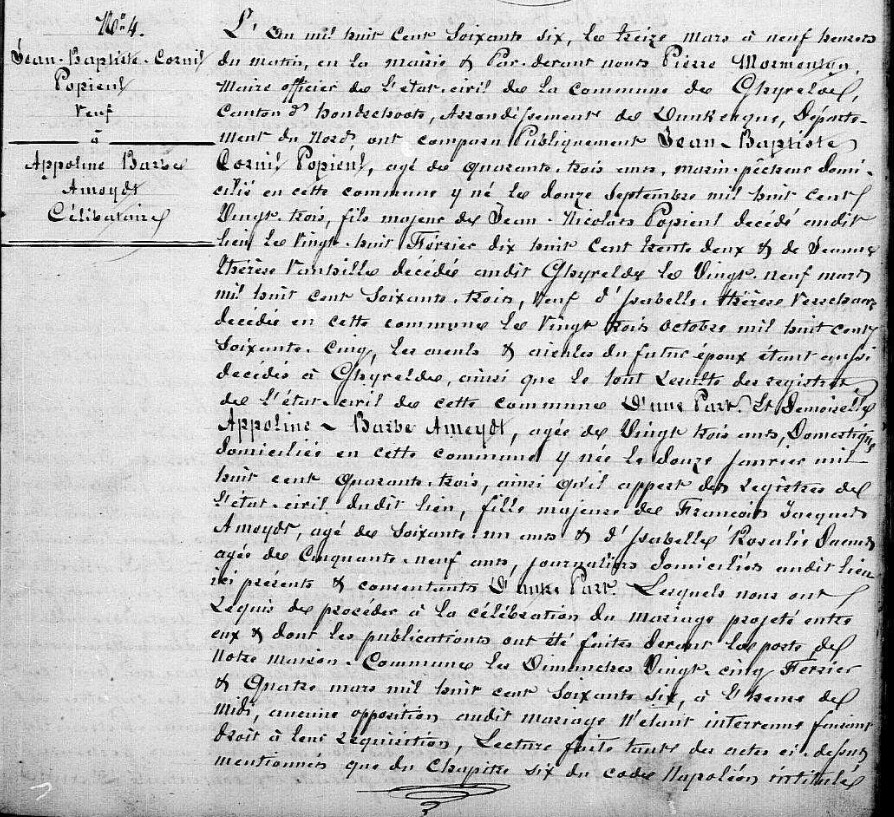 N° 4.
Jean-Baptiste-Cornil
Popieul
Veuf
à
Appoline Barbe
Ameydt
Célibataire
L'an mil huit cent soixante six, le treize mars à neuf heures
du matin, en la mairie & Par-devant nous Pierre
Maire officier de l'état-civil de la commune de Ghyvelde,
Canton d'hondschoote, Arrondissement de Dunkerque, Départe-
ment du Nord, ont comparu Publiquement Jean-Baptiste
Cornil Popieul, agé de quarante-trois ans, marin-pêcheur domi-
cilié en cette commune y né le douze Septembre mil huit cent
Vingt-trois, fils majeur de Jean-Nicolas Popieul décédé audit
lieu le Vingt-huit Février dix huit cent trente deux & de Jeanne
thérèse décédée audit Ghyvelde le Vingt-neuf mars
mil huit cent soixante-trois, Veuf d'Isabelle-thérèse
decédée en cette commune le Vingt trois octobre mil huit cent
Soixante-cinq, les aieuls & aieules du futur époux étant aussi
decédés à Ghyvelde, ainsi que le tout resulte des registres
de l'état-civil de cette commune D'une Part. Et Demoiselle
Appoline-Barbe Ameydt, agée de Vingt trois ans, Domestique
domiciliée en cette commune y née le douze janvier mil
huit cent quarante-trois, ainsi qu'il appert des registres de
l'état-civil dudit lieu, fille majeure de François Jacques
Ameydt, agé de soixante-un ans & d'Isabelle Rosalie
agée de Cinquante-neuf ans, journaliers domiciliés audit lieu
ici présents & consentants D'autre Part. Lesquels nous ont
requis de procéder à la célébration du mariage projeté entre
eux & dont les publications ont été faites devant la porte de
notre maison-Commune les Dimanches Vingt-cinq Fevrier
& Quatre mars mil huit cent soixante six, à l'heure de
midi, aucune opposition audit mariage n'étant intervenue faisant
droit à leur réquisition, Lecture faite tant des actes ci-dessus
mentionnés que du Chapitre six du code Napoléon intitulé